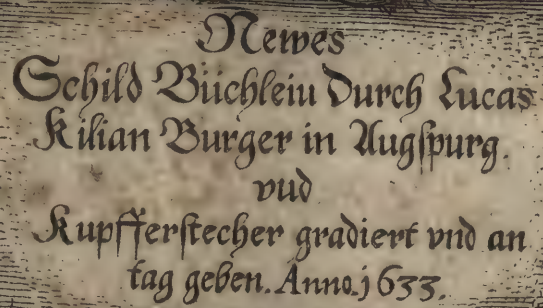 Newes
Schild Büchlein Durch Lucas
Kilian Burger in Augspurg.
vnd
Kupfferstecher gradiert vnd an
tag geben. Anno. j 633.